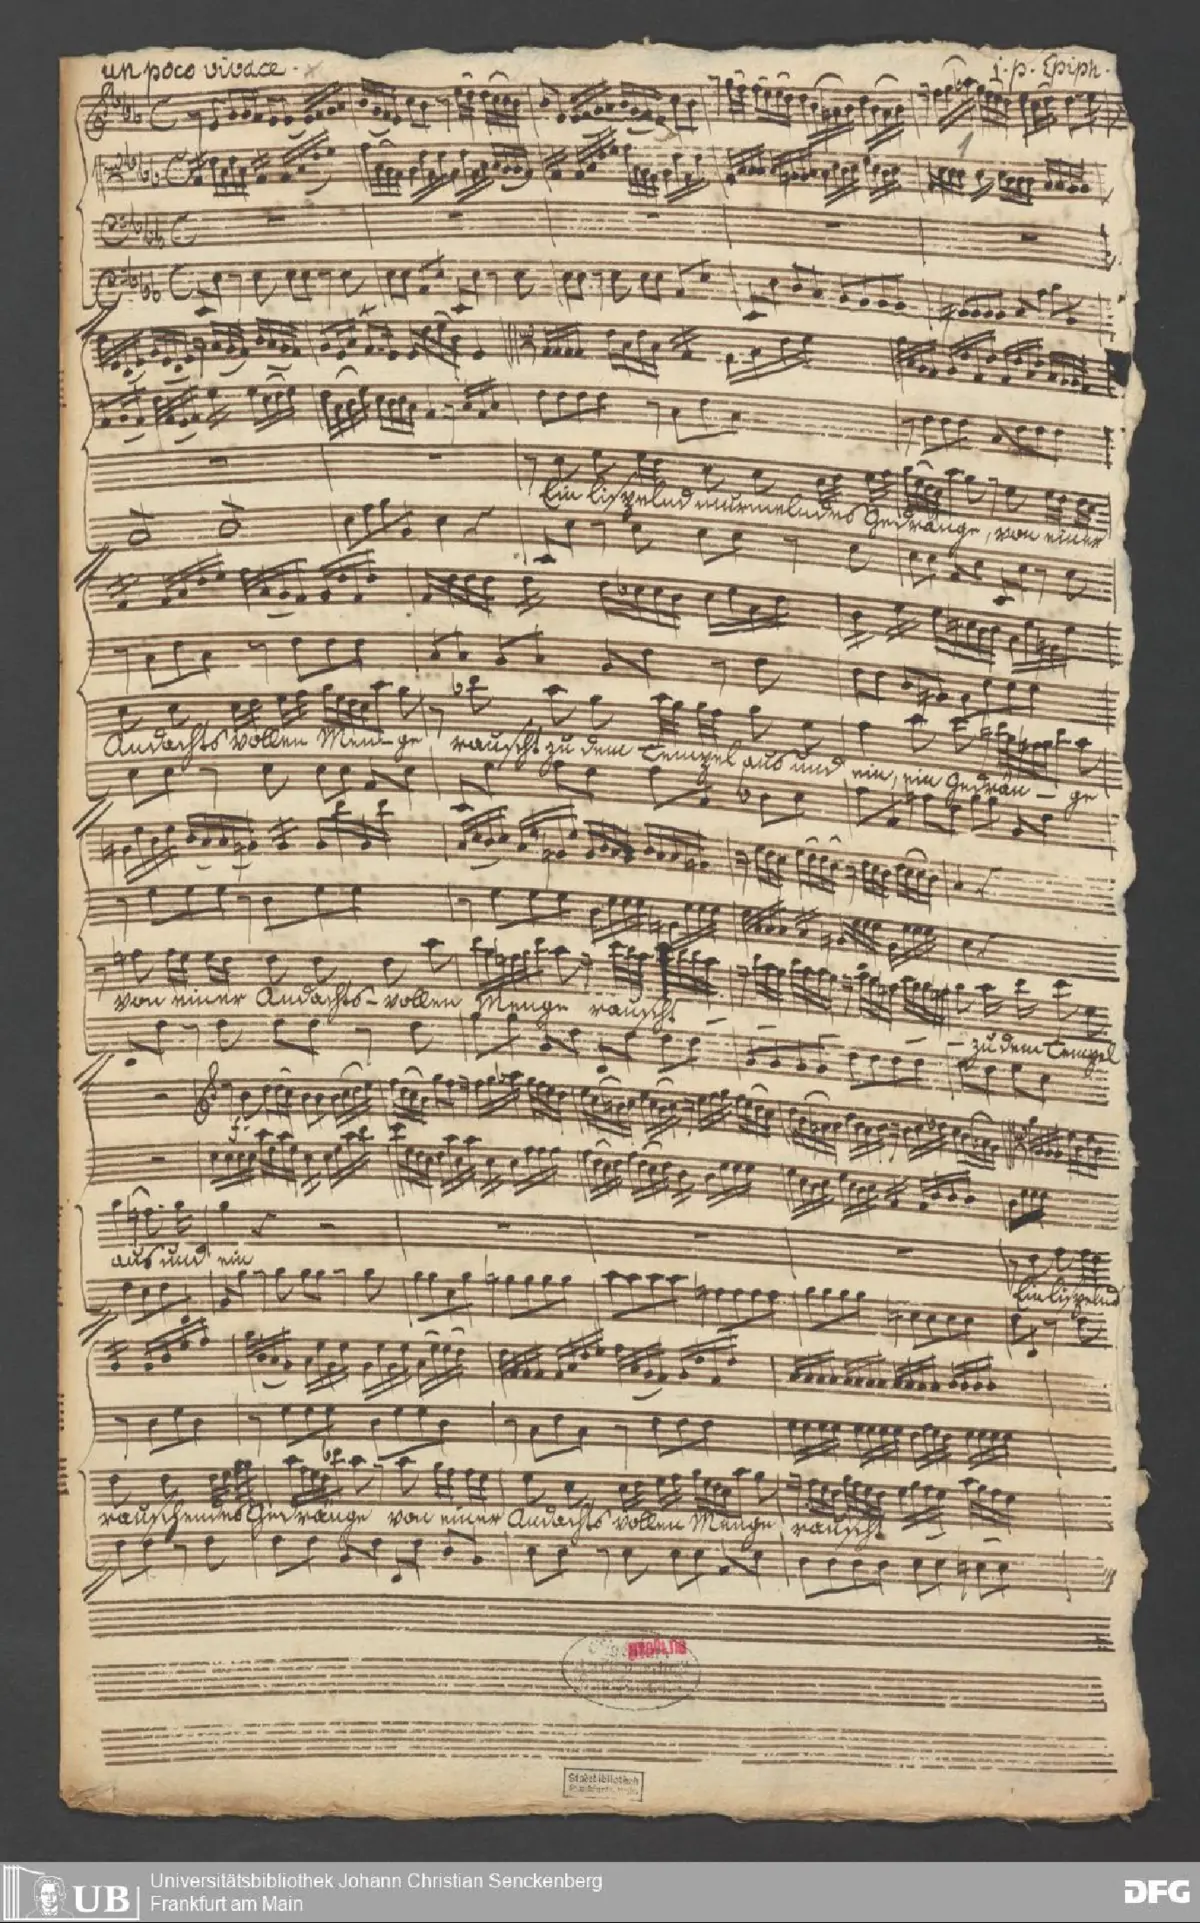 un poco vivace.
j. p. Epiph.
1
Ein lispelnd murmelndes Gedränge, von einer
Andachts vollen Menge, rauscht zu dem Tempel aus und ein, ein Gedrän - ge
von einer Andachts-vollen Menge rauscht - - - - zu dem Tempel
f.
aus und ein
Ein lispelnd
rauschendes Gedränge von einer Andachts vollen Menge rauscht -
Stadtbibliothek
UB
Universitätsbibliothek Johann Christian Senckenberg
Frankfurt am Main
DFG